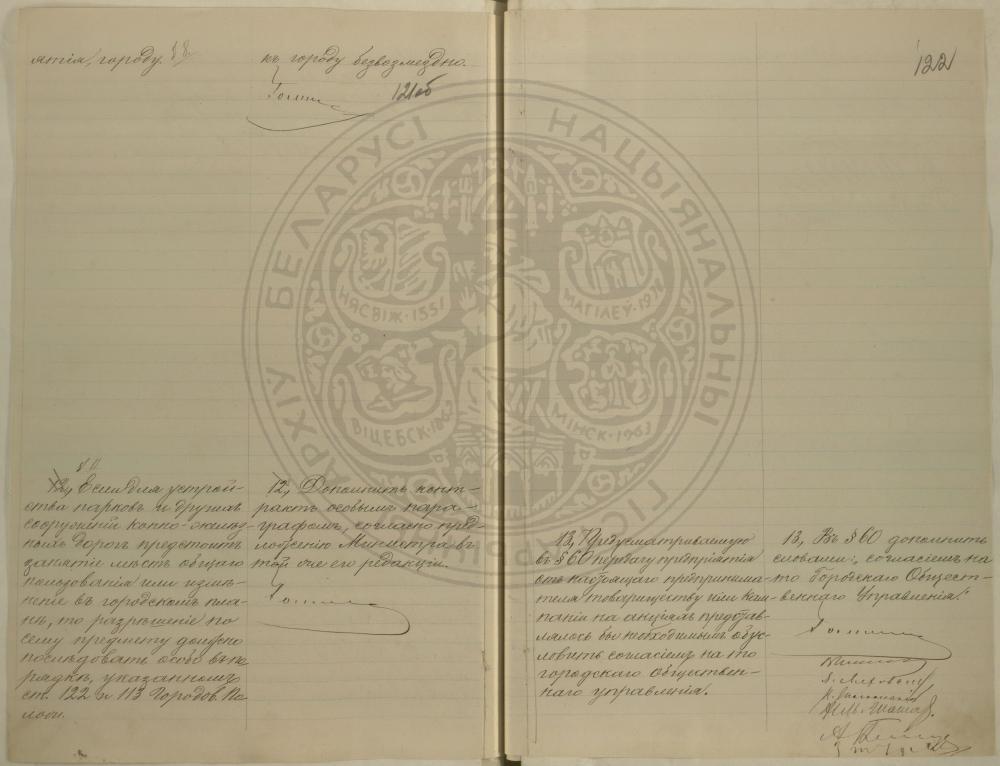 ятія, городу.
къ городу безвозмездно.
121об
§ 11.
12, Если для устрой-
ства парковъ и другихъ
сооруженій конно-желѣз-
ныхъ дорогъ предстоитъ
занятіе мѣстъ общаго
пользованія или измѣ-
неніе въ городскомъ пла-
нѣ, то разрѣшеніе по
сему предмету должно
послѣдовать особо въ по-
рядкѣ, указанномъ
ст. 122 и 113 Городов. По-
лож.
12, Дополнить конт-
рактъ особымъ пара-
графомъ, согласно пред-
ложенію Министра, въ
той же его редакціи.
122
13, Предусматриваемую
въ § 60 продажу предпріятія
отъ настоящаго предпринима-
теля товариществу или ком-
паніи на акціяхъ представ-
лялось бы необходимымъ обус-
ловить согласіемъ на то
городскаго обществен-
наго управленія.
13, Въ § 60 дополнить
словами: „согласіемъ на
то Городскаго Общест-
веннаго Управленія."
НАЦЫЯНАЛЬНЫ
ГІСТ
АРХІЎ БЕЛАРУСІ
НЯСВІЖ·1551
МАГІЛЕЎ·19
ВІЦЕБСК·186
МІНСК·1963